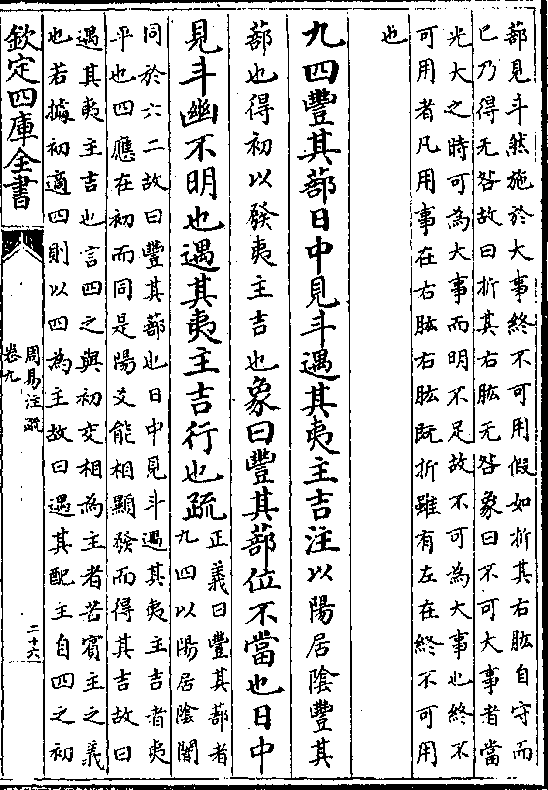 蔀見斗然施於大事終不可用假如折其右肱自守而
已乃得无咎故曰折其右肱无咎象曰不可大事者當
光大之時可為大事而明不足故不可為大事也終不
可用者凡用事在右肱右肱既折雖有左在終不可用
也
九四豐其蔀日中見斗遇其夷主吉注以陽居陰豐其
蔀也得初以發夷主吉也象曰豐其蔀位不當也日中
見斗幽不明也遇其夷主吉行也疏
正義曰豐其蔀者
九四以陽居陰闇
同於六二故曰豐其蔀也日中見斗遇其夷主吉者夷
平也四應在初而同是陽爻能相顯發而得其吉故曰
遇其夷主吉也言四之與初交相為主者若賓主之義
也若據初適四則以四為主故曰遇其配主自四之初
欽定四庫全書
周易注疏
卷九
二十六